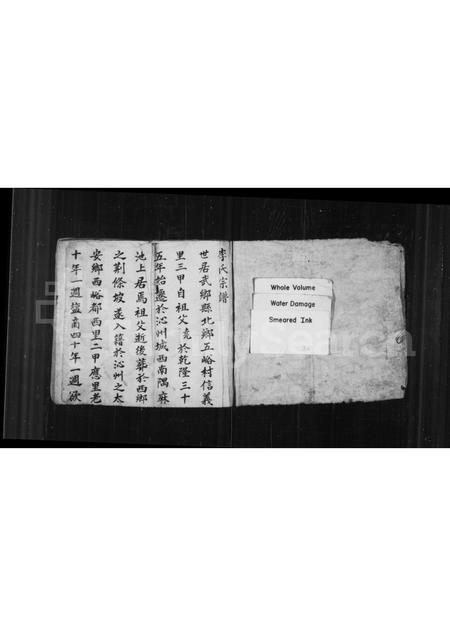 李氏宗譜
世居武鄉縣北鄉五峪村信義
里三甲自祖父竟於乾隆三十
五年始遷於沁州城西南隅麻
池上居焉祖父逝後葬於西鄉
之荆條坡遂入籍於沁州之太
安鄉西峪都西里二甲應里老
十年一週鹽商四十年一週欲
Whole Volume
Water Damage
Smeared Ink
Search